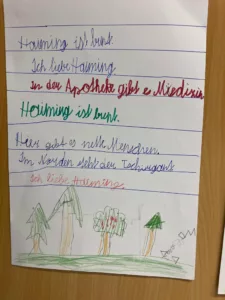 Haiming ist bunt.
Ich liebe Haiming
In der Apotheke gibt e Miedizin
Haiming ist bunt.
Hier gibt es nette Menschen.
Im Norden steht der Tschirgant
Ich liebe Haiming